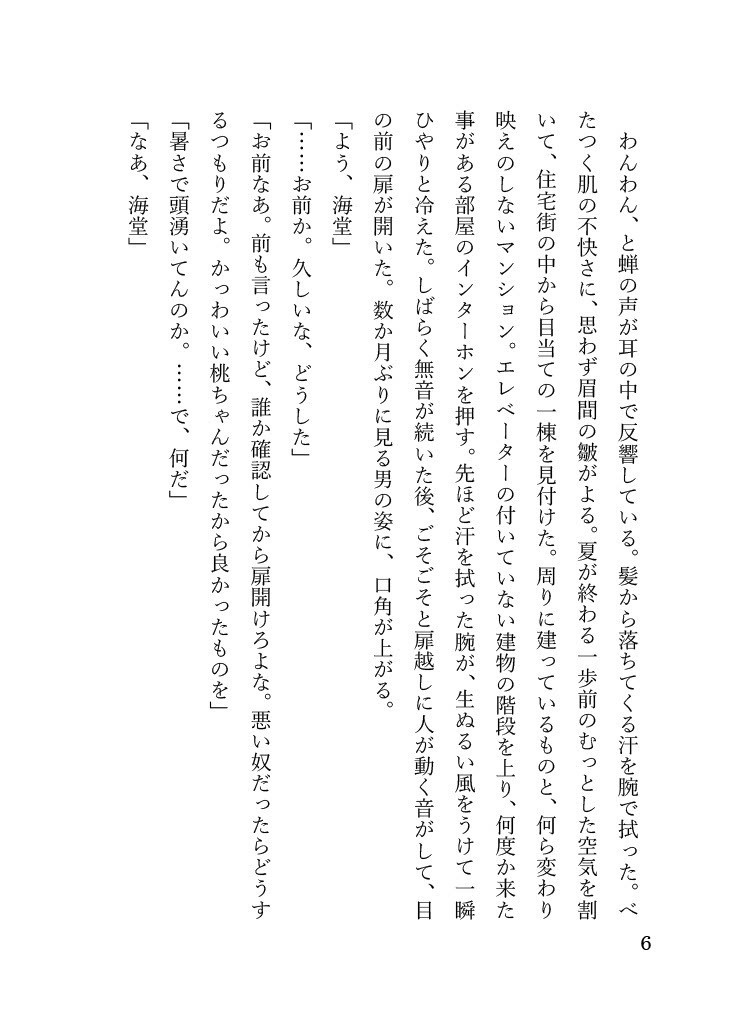 わんわん、と蝉の声が耳の中で反響している。髪から落ちてくる汗を腕で拭った。べ
たつく肌の不快さに、思わず眉間の皺がよる。夏が終わる一歩前のむっとした空気を割
いて、住宅街の中から目当ての一棟を見付けた。周りに建っているものと、何ら変わり
映えのしないマンション。エレベーターの付いていない建物の階段を上り、何度か来た
事がある部屋のインターホンを押す。先ほど汗を拭った腕が、生ぬるい風をうけて一瞬
ひやりと冷えた。しばらく無音が続いた後、ごそごそと扉越しに人が動く音がして、目
の前の扉が開いた。数か月ぶりに見る男の姿に、口角が上がる。
「よう、海堂」
「……お前か。久しいな、どうした」
「お前なあ。前も言ったけど、誰か確認してから扉開けろよな。悪い奴だったらどうす
るつもりだよ。かっわいい桃ちゃんだったから良かったものを」
「暑さで頭湧いてんのか。……で、何だ」
「なあ、海堂」
6